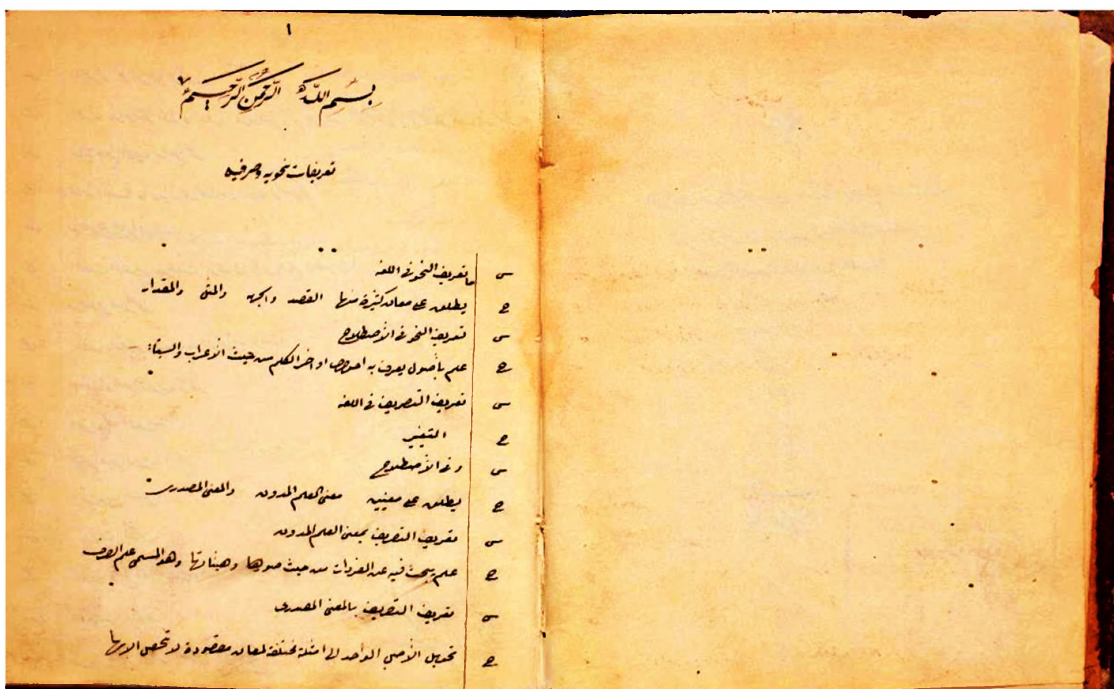 ١
بسم الله الرحمن الرحيم
تعريفات نحويه وصرفيه
س ما تعريف النحو في اللغه
ج يطلق على معان كثيرة منها القصد والجهه والمثل والمقدار
س تعريف النحو في الأصطلاح
ج علم بأصول يعرف به احوال اواخر الكلم من حيث الأعراب والبنا:
س تعريف التصريف في اللغه
ج التغيير
س وفي الأصطلاح
ج يطلق على معنيين معنى العلم المدون والمعنى المصدرى
س تعريف التصريف بمعنى العلم المدون
ج علم يبحث فيه عن المفردات من حيث صورها وهيئاتها وهو المسمى علم الصرف
س تعريف التصريف بالمعنى المصدرى
ج تحويل الأصل الواحد الى امثلة مختلفة لمعان مقصودة لا تحصل الا بها